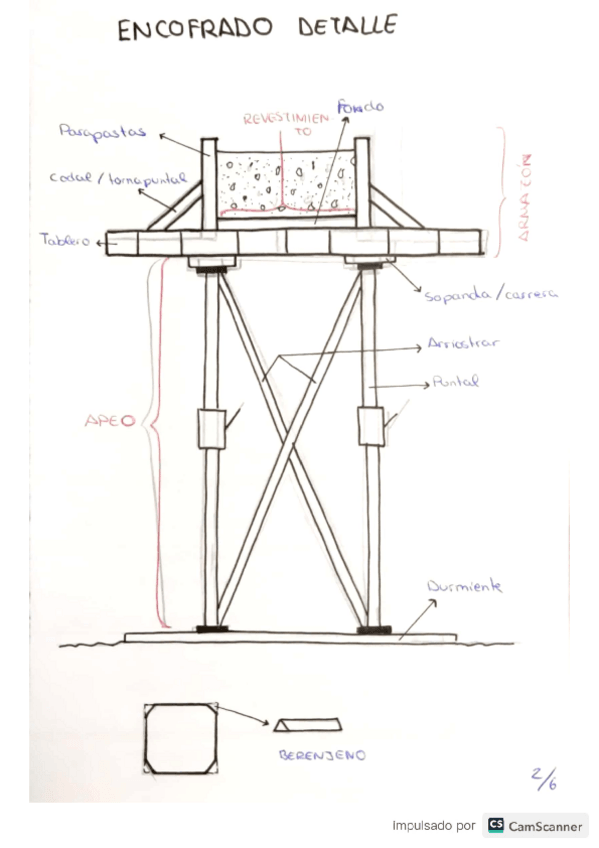 ENCOFRADO DETALLE
REVESTIMIEN
TO
Fondo
Parapastas
codal/tornapuntal
Tablero
ARMACÓN
Sopanda/carrera
Arriostrar
Puntal
APEO
Durmiente
BERENJENO
2/6
Impulsado por CS CamScanner